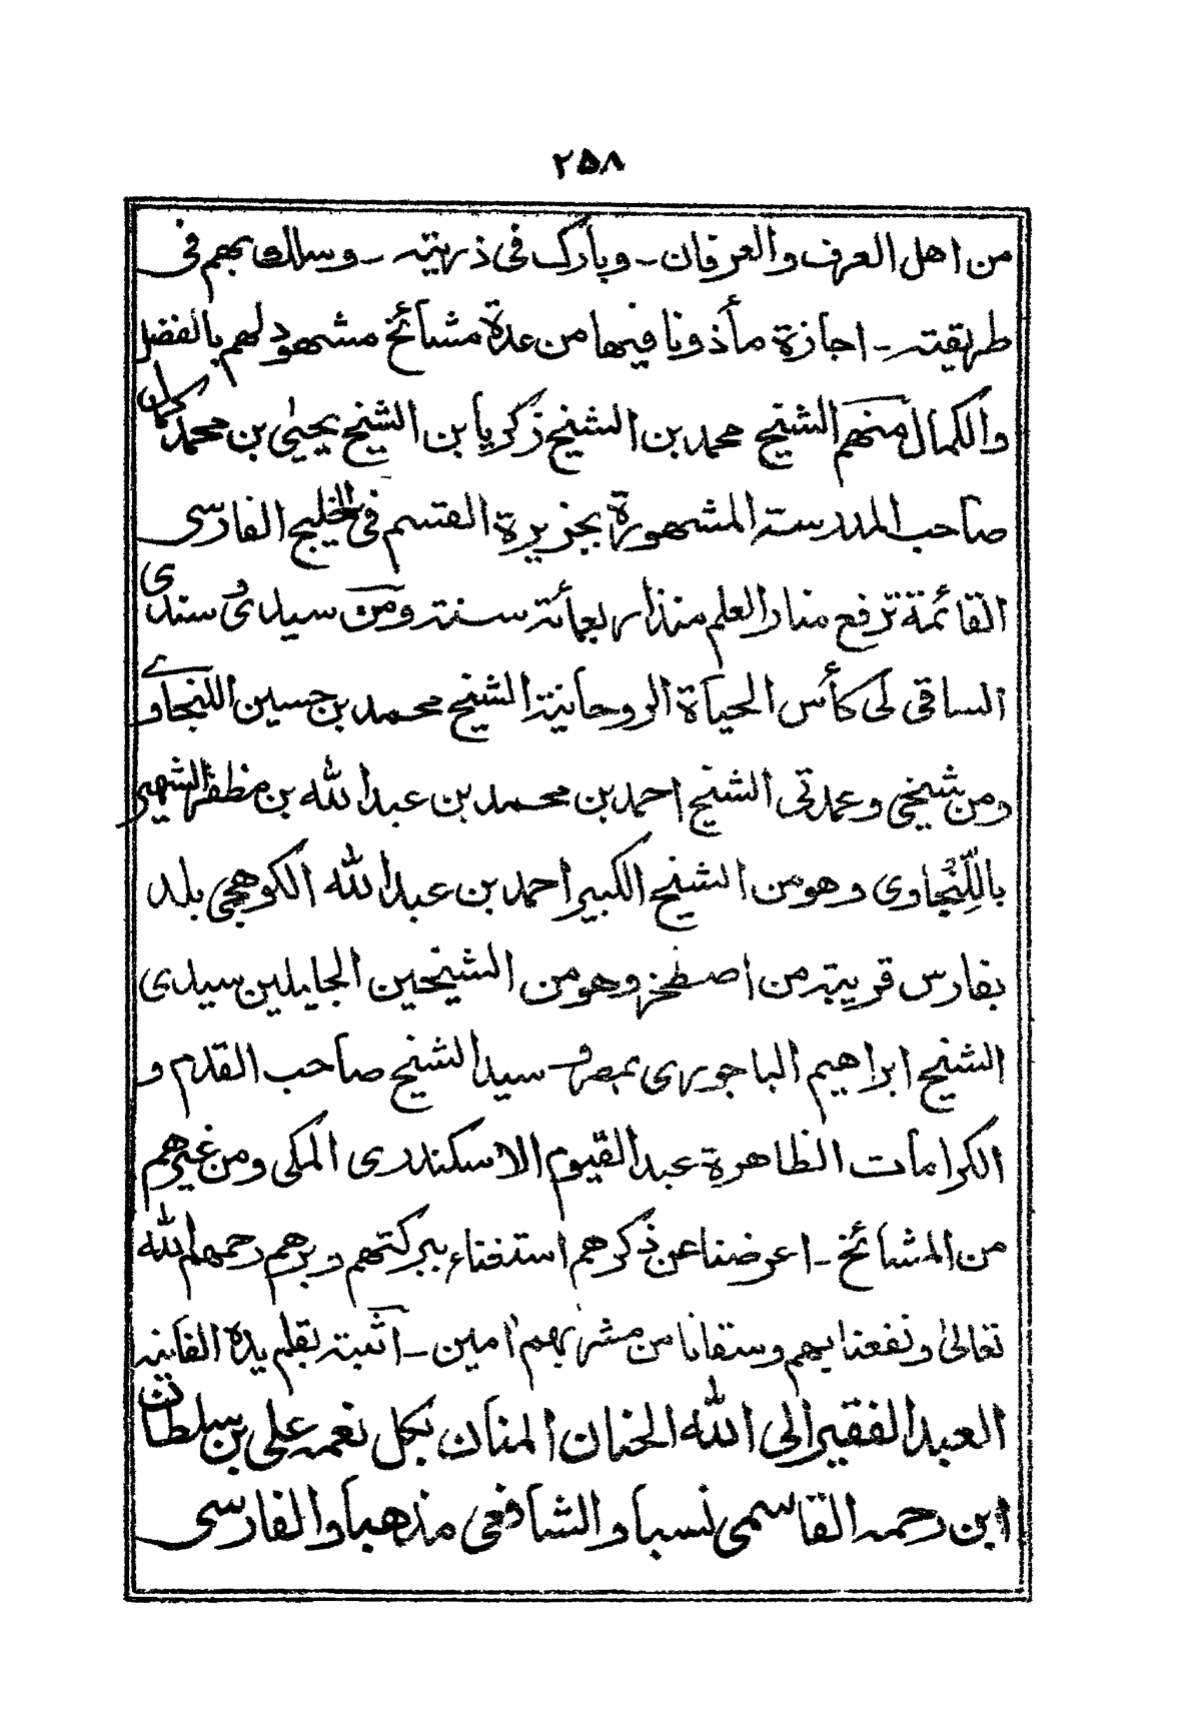 ٢٥٨
من اهل العرف والعرفان ـ وبارك فى ذريته ـ وسلك بهم فى
طريقته ـ اجازة مأذونا فيها من عدة مشائخ مشهود لهم بالفضل
والكمال منهم الشيخ محمد بن الشيخ زكريا بن الشيخ يحيى بن محمد كمال
صاحب المدرسة المشهورة بجزيرة القسم فى الخليج الفارسى
القائمة ترفع منار العلم منذ اربعمائة سنة ومن سيدى وسندى
الساقى لى كأس الحياة الروحانية الشيخ محمد بن حسين اللنجاوے
ومن شيخى وعمدتى الشيخ احمد بن محمد بن عبد الله بن مظفر الشهير
باللِّنْجاوى وهو من الشيخ الكبير احمد بن عبد الله الكوهجى بلد
بفارس قريبة من اصطخر وهو من الشيخين الجليلين سيدى
الشيخ ابراهيم الباجورى بمصر و سيد الشيخ صاحب القدم و
الكرامات الظاهرة عبد القيوم الاسكندرى المكى ومن غيرهم
من المشائخ ـ اعرضنا عن ذكرهم استغناء ببركتهم وبرهم رحمهم الله
تعالىٰ ونفعنا بهم وسقانا من مشربهم اٰمين ـ اثبته بقلم يده الفانيه
العبد الفقير الى الله الحنان المنان بكل نعمه على بن سلطان
ابن رحمه القاسمى نسبا والشافعى مذهبا والفارسى